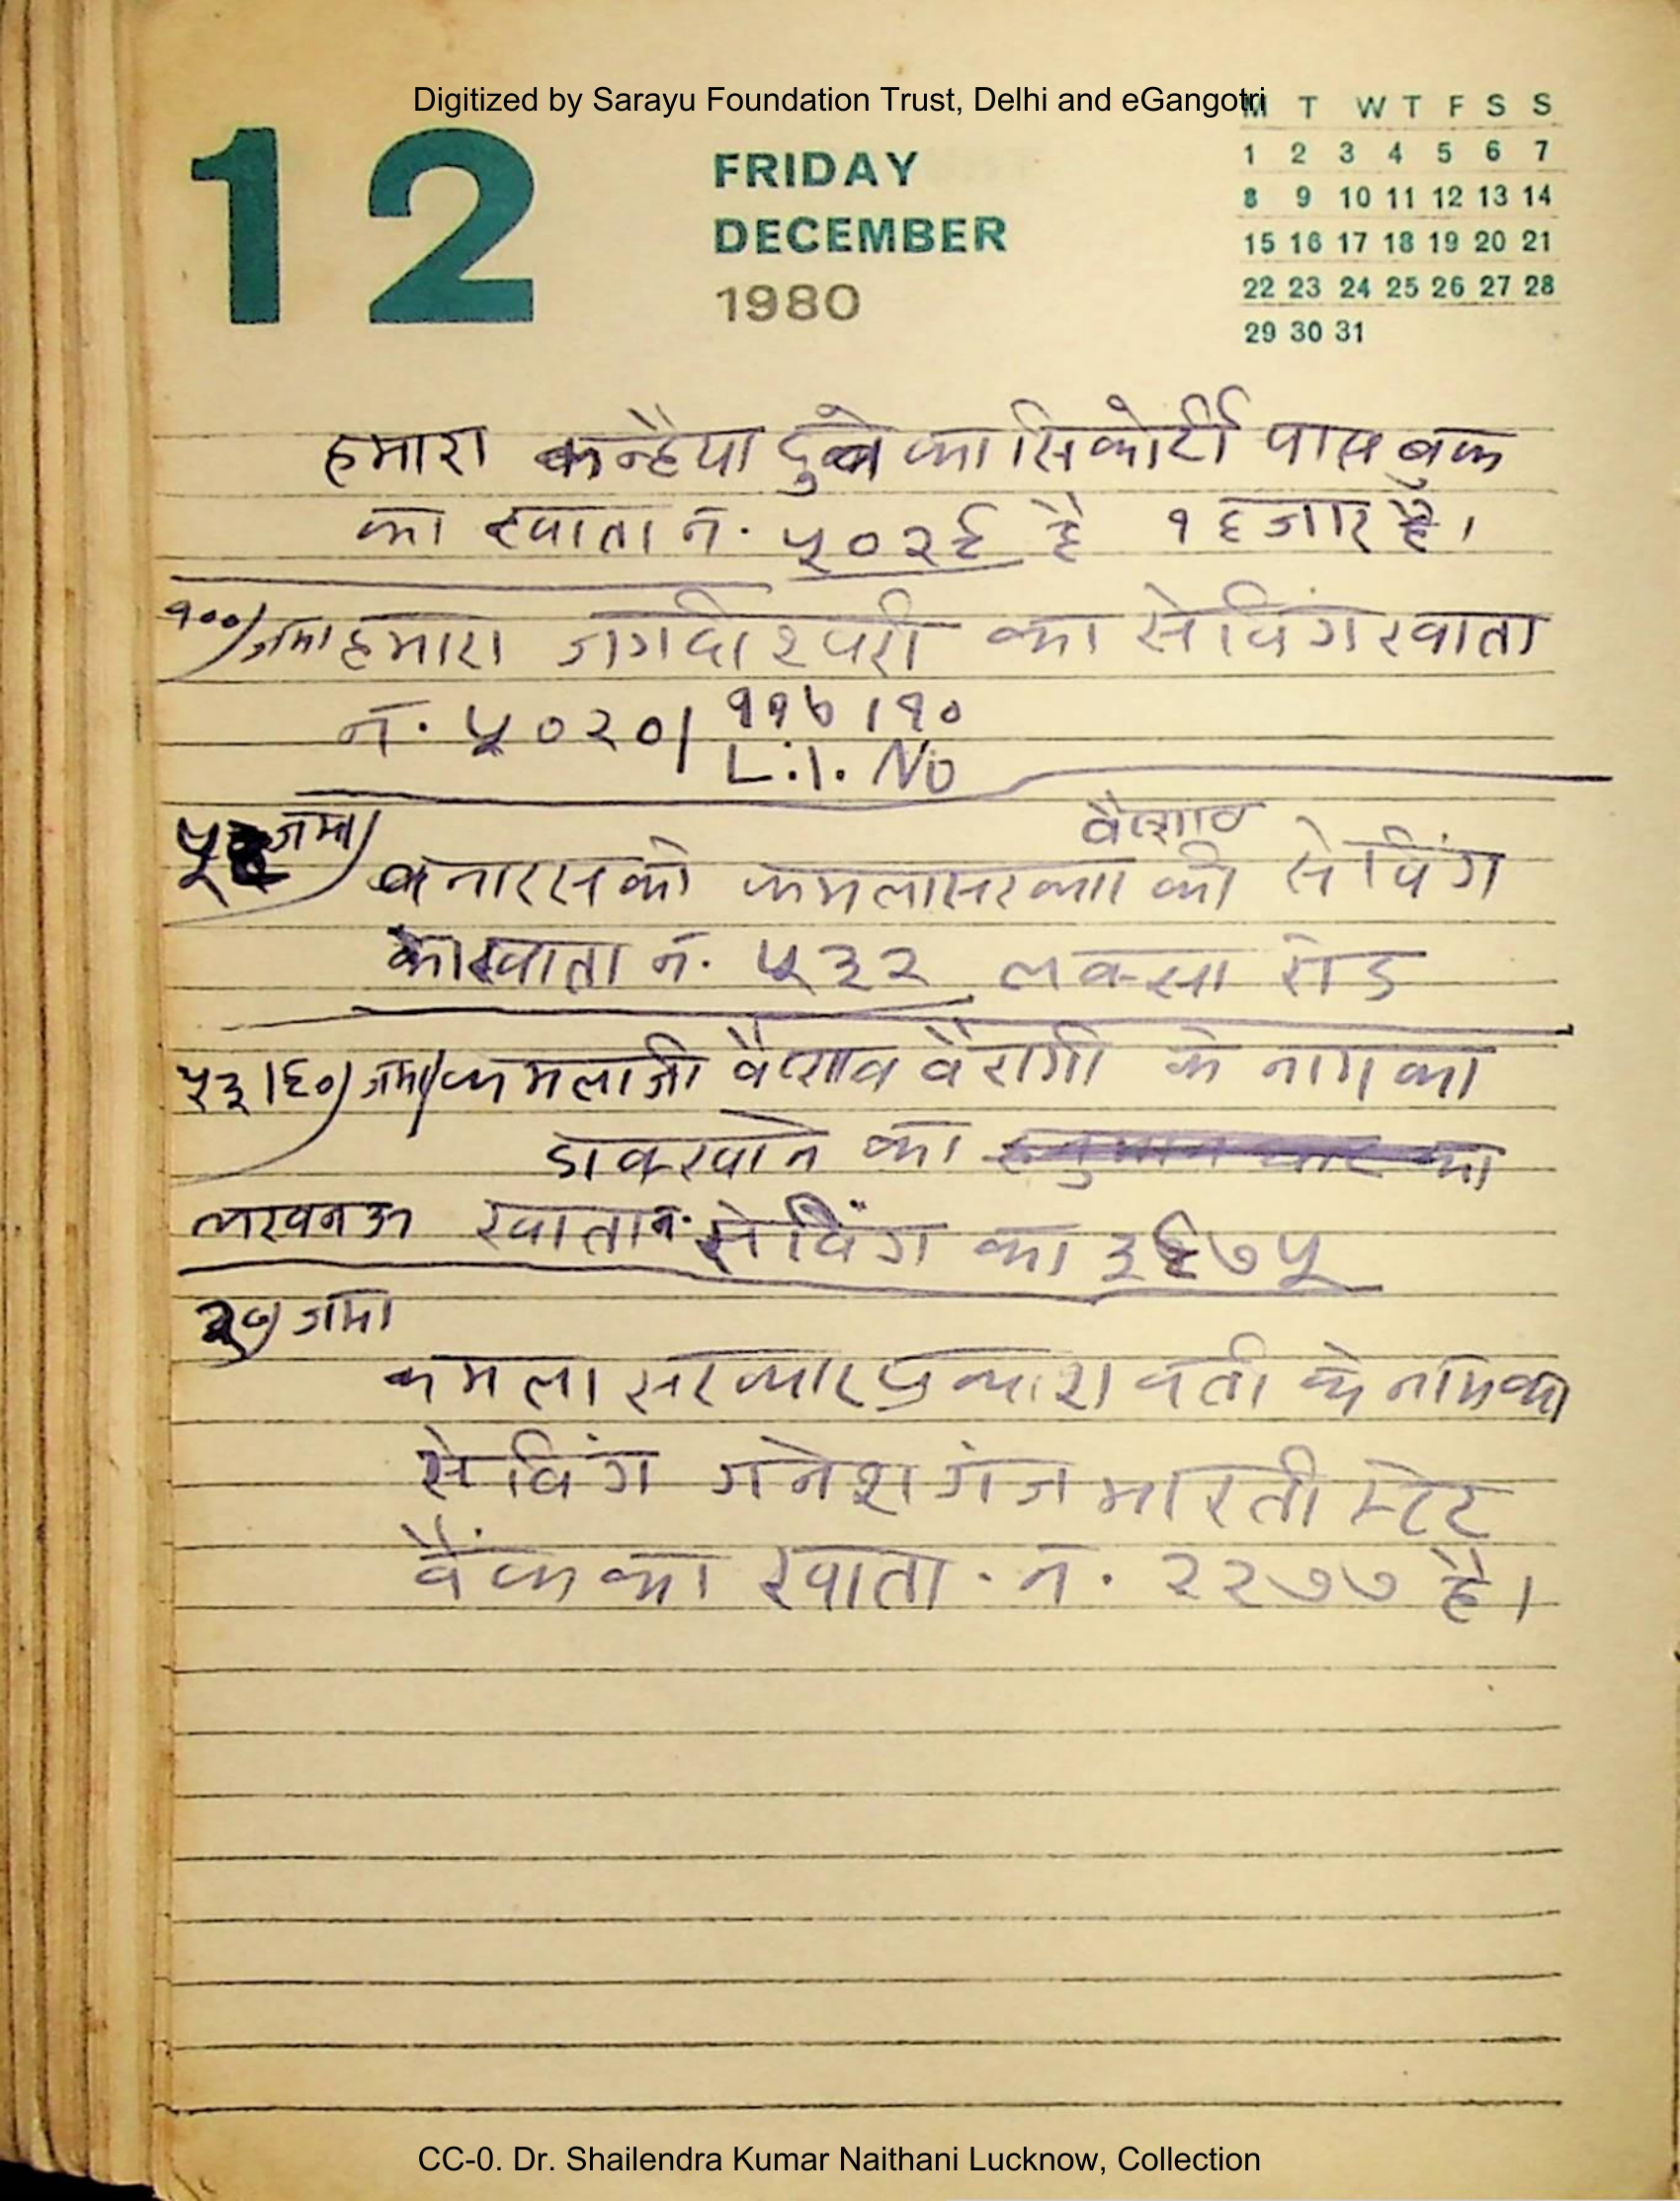 Digitized by Sarayu Foundation Trust, Delhi and eGangotri
12
FRIDAY
DECEMBER
1980
M T W T F S S
1 2 3 4 5 6 7
8 9 10 11 12 13 14
15 16 17 18 19 20 21
22 23 24 25 26 27 28
29 30 31
हमारा कन्हैया दुबे का सिकोर्टी पास बुक
का खाता नं. ५०२६ है १ हजार है।
१००/ जमा हमारा जगदीश्वरी का सेविंग खाता
नं. ५०२०/ ११७।१०
L.I. No
जमा/ वैष्णव
बनारस को कमला सरका की सेविंग
को खाता नं. ५३२ लक्सा रोड
५३।६०/ जमा/ कमलाजी वैष्णव वैरागी के नाम का
डाकखाने का
लखनऊ खाता नं. सेविंग का ३६७५
जमा
कमला सरकार प्रकाशवती के नाम का
सेविंग गनेशगंज भारती स्टेट
बैंक का खाता. नं. २२७७ है।
CC-0. Dr. Shailendra Kumar Naithani Lucknow, Collection